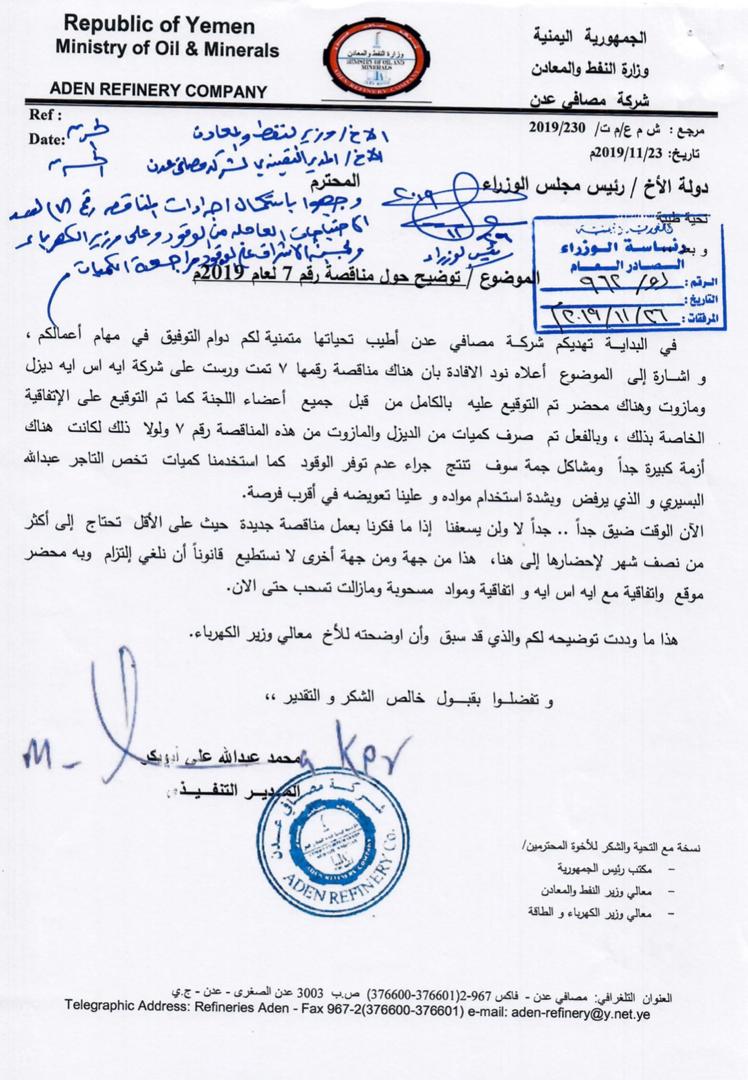 Republic of Yemen
Ministry of Oil & Minerals
ADEN REFINERY COMPANY
الجمهورية اليمنية
وزارة النفط والمعادن
شركة مصافي عدن
وزارة النفط والمعادن
MINISTRY OF OIL AND MINERALS
ADEN REFINERY COMPANY
Ref :
Date:
مرجع : ش م ع/م ت/ 2019/230
تاريخ: 2019/11/23م
الاخ/ وزير النفط والمعادن
الاخ/ المدير التنفيذي لشركة مصافي عدن
دولة الأخ / رئيس مجلس الوزراء المحترم
وجهوا باستكمال اجراءات المناقصه رقم (٧) لسد
الاحتياجات العاجله من الوقود وعلى وزير الكهرباء
رئيس الوزراء
تحية طيبة
و بعد
رئاسة الوزراء
الصادر العام
الرقم:
التاريخ: ٢٠١٩/١١/٢٦
المرفقات:
الموضوع / توضيح حول مناقصة رقم 7 لعام 2019م
في البداية تهديكم شركة مصافي عدن أطيب تحياتها متمنية لكم دوام التوفيق في مهام أعمالكم ،
و اشارة إلى الموضوع أعلاه نود الافادة بان هناك مناقصة رقمها ٧ تمت ورست على شركة ايه اس ايه ديزل
ومازوت وهناك محضر تم التوقيع عليه بالكامل من قبل جميع أعضاء اللجنة كما تم التوقيع على الإتفاقية
الخاصة بذلك ، وبالفعل تم صرف كميات من الديزل والمازوت من هذه المناقصة رقم ٧ ولولا ذلك لكانت هناك
أزمة كبيرة جداً ومشاكل جمة سوف تنتج جراء عدم توفر الوقود كما استخدمنا كميات تخص التاجر عبدالله
البسيري و الذي يرفض وبشدة استخدام مواده و علينا تعويضه في أقرب فرصة.
الآن الوقت ضيق جداً .. جداً لا ولن يسعفنا إذا ما فكرنا بعمل مناقصة جديدة حيث على الأقل تحتاج إلى أكثر
من نصف شهر لإحضارها إلى هنا، هذا من جهة ومن جهة أخرى لا نستطيع قانوناً أن نلغي إلتزام وبه محضر
موقع واتفاقية مع ايه اس ايه و اتفاقية ومواد مسحوبة ومازالت تسحب حتى الان.
هذا ما وددت توضيحه لكم والذي قد سبق وأن اوضحته للأخ معالي وزير الكهرباء.
و تفضلوا بقبول خالص الشكر و التقدير ،،
محمد عبدالله علي أبوبكر
المدير التنفيذي
شركة مصافي عدن
ADEN REFINERY Co.
نسخة مع التحية والشكر للأخوة المحترمين/
- مكتب رئيس الجمهورية
- معالي وزير النفط والمعادن
- معالي وزير الكهرباء و الطاقة
العنوان التلغرافي: مصافي عدن - فاكس 967-2(376601-376600) ص.ب 3003 عدن الصغرى - عدن - ج.ي
Telegraphic Address: Refineries Aden - Fax 967-2(376600-376601) e-mail: aden-refinery@y.net.ye